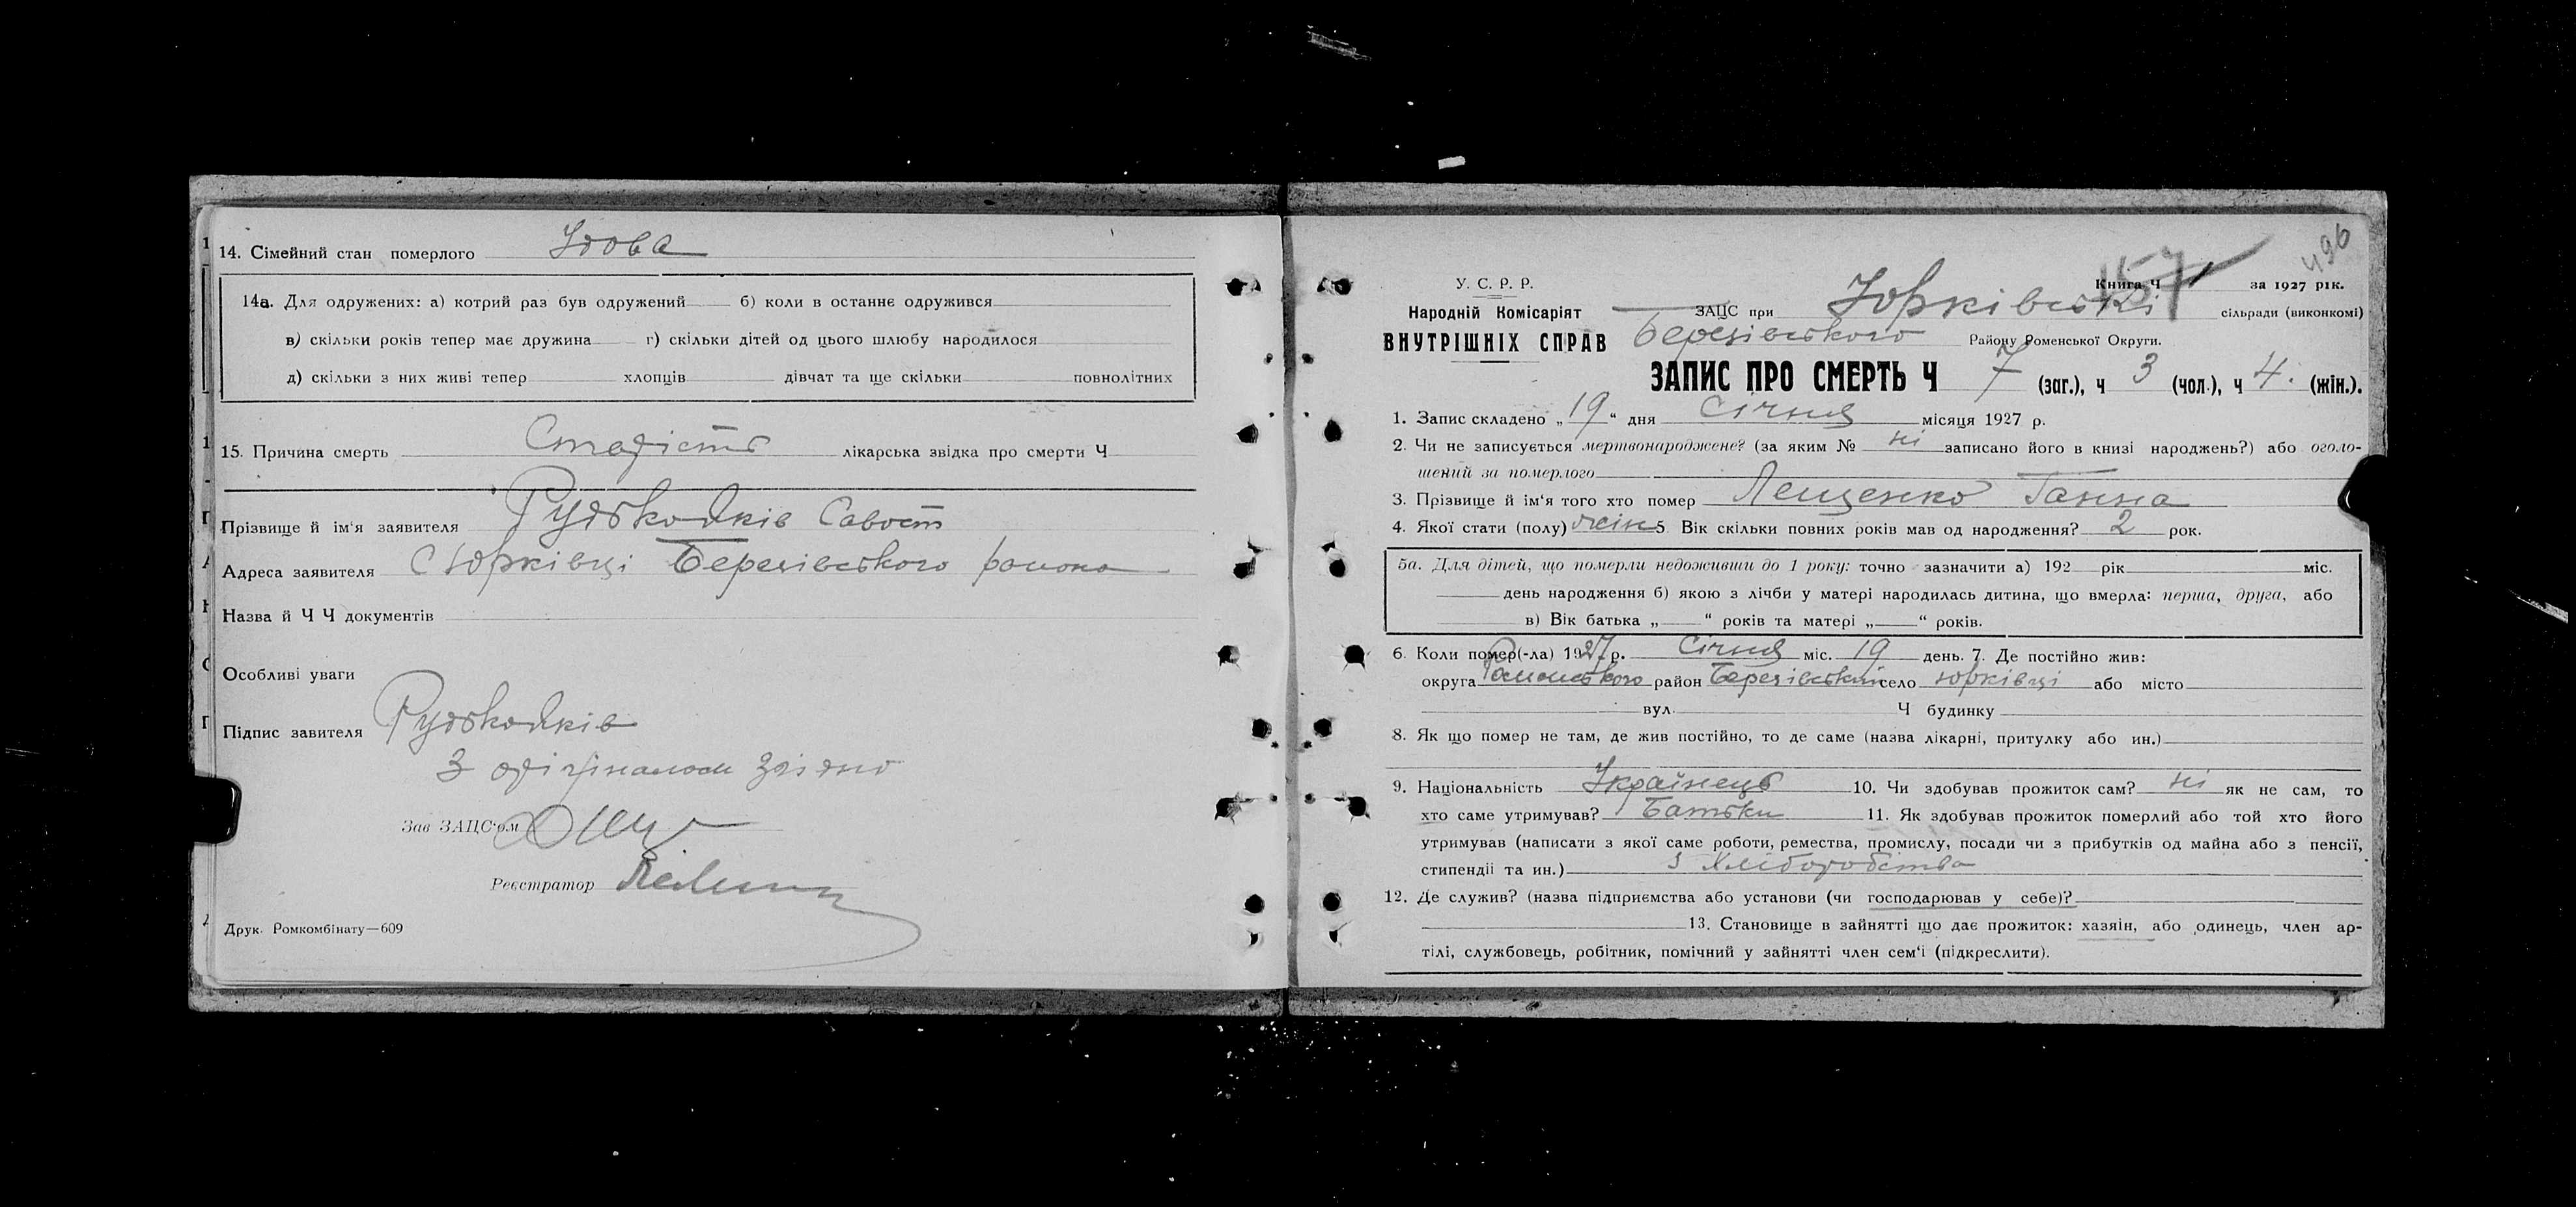 14. Сімейний стан померлого Удова
14а. Для одружених: а) котрий раз був одружений б) коли в останнє одружився
в) скільки років тепер має дружина г) скільки дітей од цього шлюбу народилося
д) скільки з них живі тепер хлопців дівчат та ще скільки повнолітних
15. Причина смерть Старість лікарська звідка про смерти Ч
Прізвище й ім'я заявителя Савост
Адреса заявителя С Юрківці Березівського района
Назва й Ч Ч документів
Особливі уваги
Підпис завителя
З орігіналом згідно
Зав ЗАЦС'ом
Реєстратор
Друк. Ромкомбінату—609
496
157
У. С. Р. Р. Книга Ч за 1927 рік.
Народній Комісаріят ЗАЦС при Юрківській сільради (виконкомі)
ВНУТРІШНІХ СПРАВ Березівського Району Роменської Округи.
ЗАПИС ПРО СМЕРТЬ Ч 7 (заг.), ч 3 (чол.), ч 4. (жін.).
1. Запис складено „19“ дня Січня місяця 1927 р.
2. Чи не записується мертвонароджене? (за яким № ні записано його в книзі народжень?) або оголо-
шений за померлого
3. Прізвище й ім'я того хто помер Лещенко Ганна
4. Якої стати (полу) жін 5. Вік скільки повних років мав од народження? 2 рок.
5а. Для дітей, що померли недоживши до 1 року: точно зазначити а) 192 рік міс.
день народження б) якою з лічби у матері народилась дитина, що вмерла: перша, друга, або
в) Вік батька „ “ років та матері „ “ років.
6. Коли помер(-ла) 1927 р. Січня міс. 19 день. 7. Де постійно жив:
округа Роменського район Березівський село Юрківці або місто
вул. Ч будинку
8. Як що помер не там, де жив постійно, то де саме (назва лікарні, притулку або ин.)
9. Національність Українець 10. Чи здобував прожиток сам? ні як не сам, то
хто саме утримував? Батьки 11. Як здобував прожиток померлий або той хто його
утримував (написати з якої саме роботи, ремества, промислу, посади чи з прибутків од майна або з пенсії,
стипендії та ин.) з Хліборобства
12. Де служив? (назва підприємства або установи (чи господарював у себе)?
13. Становище в зайнятті що дає прожиток: хазяін, або одинець, член ар-
тілі, службовець, робітник, помічний у зайнятті член сем'ї (підкреслити).